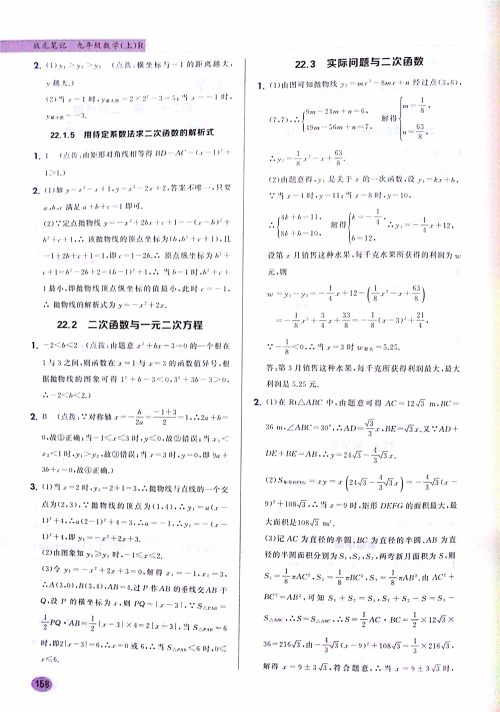 状元笔记 九年级数学(上)R
2. (1)y₁>y₃>y₂ (点拨:横坐标与-1的距离越大,
y越大.)
(2)当x=1时,y最大值=2×2²-3=5;当x=-1时,
y最小值=-3.
22.1.5 用待定系数法求二次函数的解析式
1. 1 (点拨:由矩形对角线相等得BD=AC=(x-1)²+
1≥1.)
2. (1)如y=x²-x+1,y=x²-2x+2,答案不唯一,只要
a,b,c满足a+b+c=1即可.
(2)∵定抛物线y=-x²+2bx+c+1=-(x-b)²+
b²+c+1,∴该抛物线的顶点坐标为(b,b²+c+1),且
-1+2b+c+1=1,即c=1-2b,∴顶点纵坐标为b²+
c+1=b²-2b+2=(b-1)²+1,∴当b=1时,b²+c+
1最小,即抛物线顶点纵坐标的值最小,此时c=-1,
∴抛物线的解析式为y=-x²+2x.
22.2 二次函数与一元二次方程
1. -2<b<2 (点拨:由题意
1与3之间,则函数在x=1与x=3的函数值异号,根
据抛物线的图象可得1²+b-3<0,3²+3b-3>0,
∴-2<b<2.)
2. B (点拨:∵对称轴x=-b/2a=(-1+3)/2=1,∴2a+b=
0,故①正确;当-1≤x≤3时,y≤0,故②错误;当x₁<
x₂<1时,y₁>y₂,故③错误;当x=3时,y=0,即9a+
3b+c=0,故④正确.)
3. (1)当x=2时,y₁=2+1=3,∴抛物线与直线的一个交
点为(2,3),∵抛物线的顶点为(1,4),∴y₂=a(x-
1)²+4,∴a(2-1)²+4=3,∴a=-1,∴y₂=-(x-
1)²+4,即y₂=-x²+2x+3.
(2)由图象知y₂≥y₁时,-1≤x≤2.
(3)令y₂=-x²+2x+3=0,解得x₁=-1,x₂=3,
∴A(3,0),B(3,4),AB=4.过P作AB的垂线交AB于
Q,设P的横坐标为x,则PQ=|x-3|,∵S△PAB=
1/2 PQ·AB=1/2|x-3|×4=2|x-3|,当S△PAB=6
时,即2|x-3|=6,∴x=0或6,∴当S△PAB≤6时,0≤
x≤6.
22.3 实际问题与二次函数
1. (1)由图可知抛物线y₂=mx²-8mx+n经过点(3,6),
(7,7),∴{9m-24m+n=6, 49m-56m+n=7, 解得{m=1/8, n=63/8.
∴y₂=1/8 x²-x+63/8.
(2)由题意得,y₁是关于x的一次函数,设y₁=kx+b,
∵当x=4时,y=11;当x=8时,y=10,
∴{4k+b=11, 8k+b=10, 解得{k=-1/4, b=12, ∴y₁=-1/4 x+12,
设第x月销售这种水果,每千克水果所获得的利润为w
元,则
w=y₁-y₂=-1/4 x+12-(1/8 x²-x+63/8)
=-1/8 x²+3/4 x+33/8=-1/8(x-3)²+21/4,
∵-1/8<0,∴当x=3时w最大=5.25.
答:第3月销售这种水果,每千克所获得利润最大,最大
利润是5.25元.
2. (1)在Rt△ABC中,由题意可得AC=12√3 m,BC=
36 m,∠ABC=30°,∴AD=√3/3 x,BE=√3x.又∵AD+
DE+BE=AB,∴y=24√3-4/3√3x.
(2)S矩形DEFG=xy=x(24√3-4/3√3x)=-4/3√3(x-
9)²+108√3,∴当x=9时,矩形DEFG的面积最大,最
大面积是108√3 m².
(3)记AC为直径的半圆,BC为直径的半圆,AB为直
径的半圆面积分别为S₁,S₂,S₃,两弯新月面积为S,则
S₁=1/8 πAC²,S₂=1/8 πBC²,S₃=1/8 πAB²,由AC²+
BC²=AB²,可知S₁+S₂=S₃,S₁+S₂-S=S₃-
S△ABC,∴S=S△ABC,∴S=1/2 AC·BC=1/2×12√3×
36=216√3,由-4/3√3(x-9)²+108√3=1/3×216√3,
解得x=9±3√3,符合题意,∴当x=9±3√3时,
168